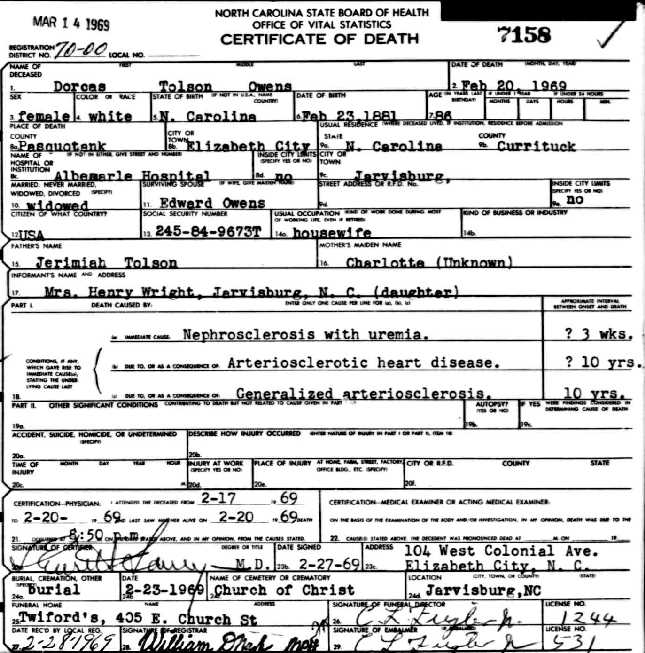 MAR 14 1969
NORTH CAROLINA STATE BOARD OF HEALTH
OFFICE OF VITAL STATISTICS
CERTIFICATE OF DEATH
7158
REGISTRATION DISTRICT NO. 70-00 LOCAL NO.
NAME OF DECEASED FIRST MIDDLE LAST DATE OF DEATH (MONTH, DAY, YEAR)
1. Dorcas Tolson Owens 2. Feb 20, 1969
SEX COLOR OR RACE STATE OF BIRTH (IF NOT IN U.S.A., NAME COUNTRY) DATE OF BIRTH AGE (IN YEARS LAST BIRTHDAY) IF UNDER 1 YEAR IF UNDER 24 HOURS
MONTHS DAYS HOURS MIN.
3. female 4. white 5. N. Carolina 6. Feb 23, 1881 7. 86
PLACE OF DEATH USUAL RESIDENCE (WHERE DECEASED LIVED, IF INSTITUTION, RESIDENCE BEFORE ADMISSION)
COUNTY CITY OR TOWN STATE COUNTY
8a. Pasquotank 8b. Elizabeth City 9a. N. Carolina 9b. Currituck
NAME OF HOSPITAL OR INSTITUTION (IF NOT IN EITHER, GIVE STREET AND NUMBER) INSIDE CITY LIMITS (SPECIFY YES OR NO) CITY OR TOWN
8c. Albemarle Hospital 8d. no 9c. Jarvisburg,
MARRIED, NEVER MARRIED, WIDOWED, DIVORCED (SPECIFY) SURVIVING SPOUSE (IF WIFE, GIVE MAIDEN NAME) STREET ADDRESS OR R.F.D. No. INSIDE CITY LIMITS (SPECIFY YES OR NO)
10. widowed 11. Edward Owens 9d. 9e. no
CITIZEN OF WHAT COUNTRY? SOCIAL SECURITY NUMBER USUAL OCCUPATION (KIND OF WORK DONE DURING MOST OF WORKING LIFE, EVEN IF RETIRED) KIND OF BUSINESS OR INDUSTRY
12. USA 13. 245-84-9673T 14a. housewife 14b.
FATHER'S NAME MOTHER'S MAIDEN NAME
15. Jerimiah Tolson 16. Charlotte (Unknown)
INFORMANT'S NAME AND ADDRESS
17. Mrs. Henry Wright, Jarvisburg, N. C. (daughter)
PART I. DEATH CAUSED BY: ENTER ONLY ONE CAUSE PER LINE FOR (a), (b), (c) APPROXIMATE INTERVAL BETWEEN ONSET AND DEATH
(a) IMMEDIATE CAUSE: Nephrosclerosis with uremia. ? 3 wks.
CONDITIONS, IF ANY, WHICH GAVE RISE TO IMMEDIATE CAUSE(a), STATING THE UNDERLYING CAUSE LAST
(b) DUE TO, OR AS A CONSEQUENCE OF: Arteriosclerotic heart disease. ? 10 yrs.
18. (c) DUE TO, OR AS A CONSEQUENCE OF: Generalized arteriosclerosis. 10 yrs.
PART II. OTHER SIGNIFICANT CONDITIONS CONTRIBUTING TO DEATH BUT NOT RELATED TO CAUSE GIVEN IN PART I AUTOPSY? (YES OR NO) IF YES WERE FINDINGS CONSIDERED IN DETERMINING CAUSE OF DEATH
19a. 19b. 19c.
ACCIDENT, SUICIDE, HOMICIDE, OR UNDETERMINED (SPECIFY) DESCRIBE HOW INJURY OCCURRED (ENTER NATURE OF INJURY IN PART I OR PART II, ITEM 18)
20a. 20b.
TIME OF INJURY MONTH DAY YEAR HOUR INJURY AT WORK (SPECIFY YES OR NO) PLACE OF INJURY AT HOME, FARM, STREET, FACTORY, OFFICE BLDG., ETC. (SPECIFY) CITY OR R.F.D. COUNTY STATE
20c. M. 20d. 20e. 20f.
CERTIFICATION-PHYSICIAN: I ATTENDED THE DECEASED FROM 2-17 1969 CERTIFICATION-MEDICAL EXAMINER OR ACTING MEDICAL EXAMINER:
TO 2-20- 1969 AND LAST SAW HIM/HER ALIVE ON 2-20 1969 DEATH ON THE BASIS OF THE EXAMINATION OF THE BODY AND/OR INVESTIGATION, IN MY OPINION, DEATH WAS DUE TO THE
21. OCCURRED AT 8:50 p.m. ABOVE, AND IN MY OPINION, FROM THE CAUSES STATED. 22. CAUSE(S) STATED ABOVE. THE DECEDENT WAS PRONOUNCED DEAD AT M. ON 19
SIGNATURE OF CERTIFIER DEGREE OR TITLE DATE SIGNED ADDRESS 104 West Colonial Ave.
M.D. 23b. 2-27-69 23c. Elizabeth City, N. C.
BURIAL, CREMATION, OTHER (SPECIFY) DATE NAME OF CEMETERY OR CREMATORY LOCATION (CITY, TOWN, OR COUNTY) (STATE)
24a. burial 24b. 2-23-1969 Church of Christ 24d. Jarvisburg, NC
FUNERAL HOME NAME ADDRESS SIGNATURE OF FUNERAL DIRECTOR LICENSE NO.
25. Twiford's, 405 E. Church St 26. 1244
DATE REC'D BY LOCAL REG. SIGNATURE OF REGISTRAR SIGNATURE OF EMBALMER LICENSE NO.
27. 2-28-1969 28. William 29. 531